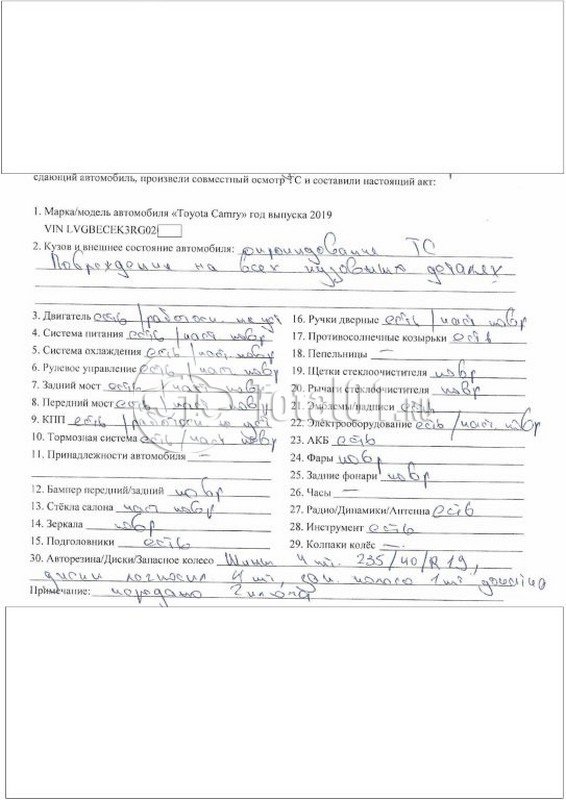 сдающий автомобиль, произвели совместный осмотр ТС и составили настоящий акт:
1. Марка/модель автомобиля «Toyota Camry» год выпуска 2019
VIN LVGBECEK3RG02
2. Кузов и внешнее состояние автомобиля: опрокидование ТС
Повреждения на всех кузовных деталях
3. Двигатель есть /работосп не уст
4. Система питания есть /част повр
5. Система охлаждения есть /част повр
6. Рулевое управление есть / част повр
7. Задний мост есть / част повр
8. Передний мост есть / част повр
9. КПП есть /работосп не уст
10. Тормозная система есть / част повр
11. Принадлежности автомобиля —
12. Бампер передний/задний повр
13. Стёкла салона част повр
14. Зеркала повр
15. Подголовники есть
16. Ручки дверные есть /част повр
17. Противосолнечные козырьки есть
18. Пепельницы —
19. Щетки стеклоочистителя повр
20. Рычаги стеклоочистителя повр
21. Эмблемы/надписи есть
22. Электрооборудование есть /част повр
23. АКБ есть
24. Фары повр
25. Задние фонари повр
26. Часы —
27. Радио/Динамики/Антенна есть
28. Инструмент есть
29. Колпаки колёс —
30. Авторезина/Диски/Запасное колесо Шины 4 шт. 235/40/R19,
диски 4 шт, зап. колесо 1 шт
Примечание: передано 2 ключа